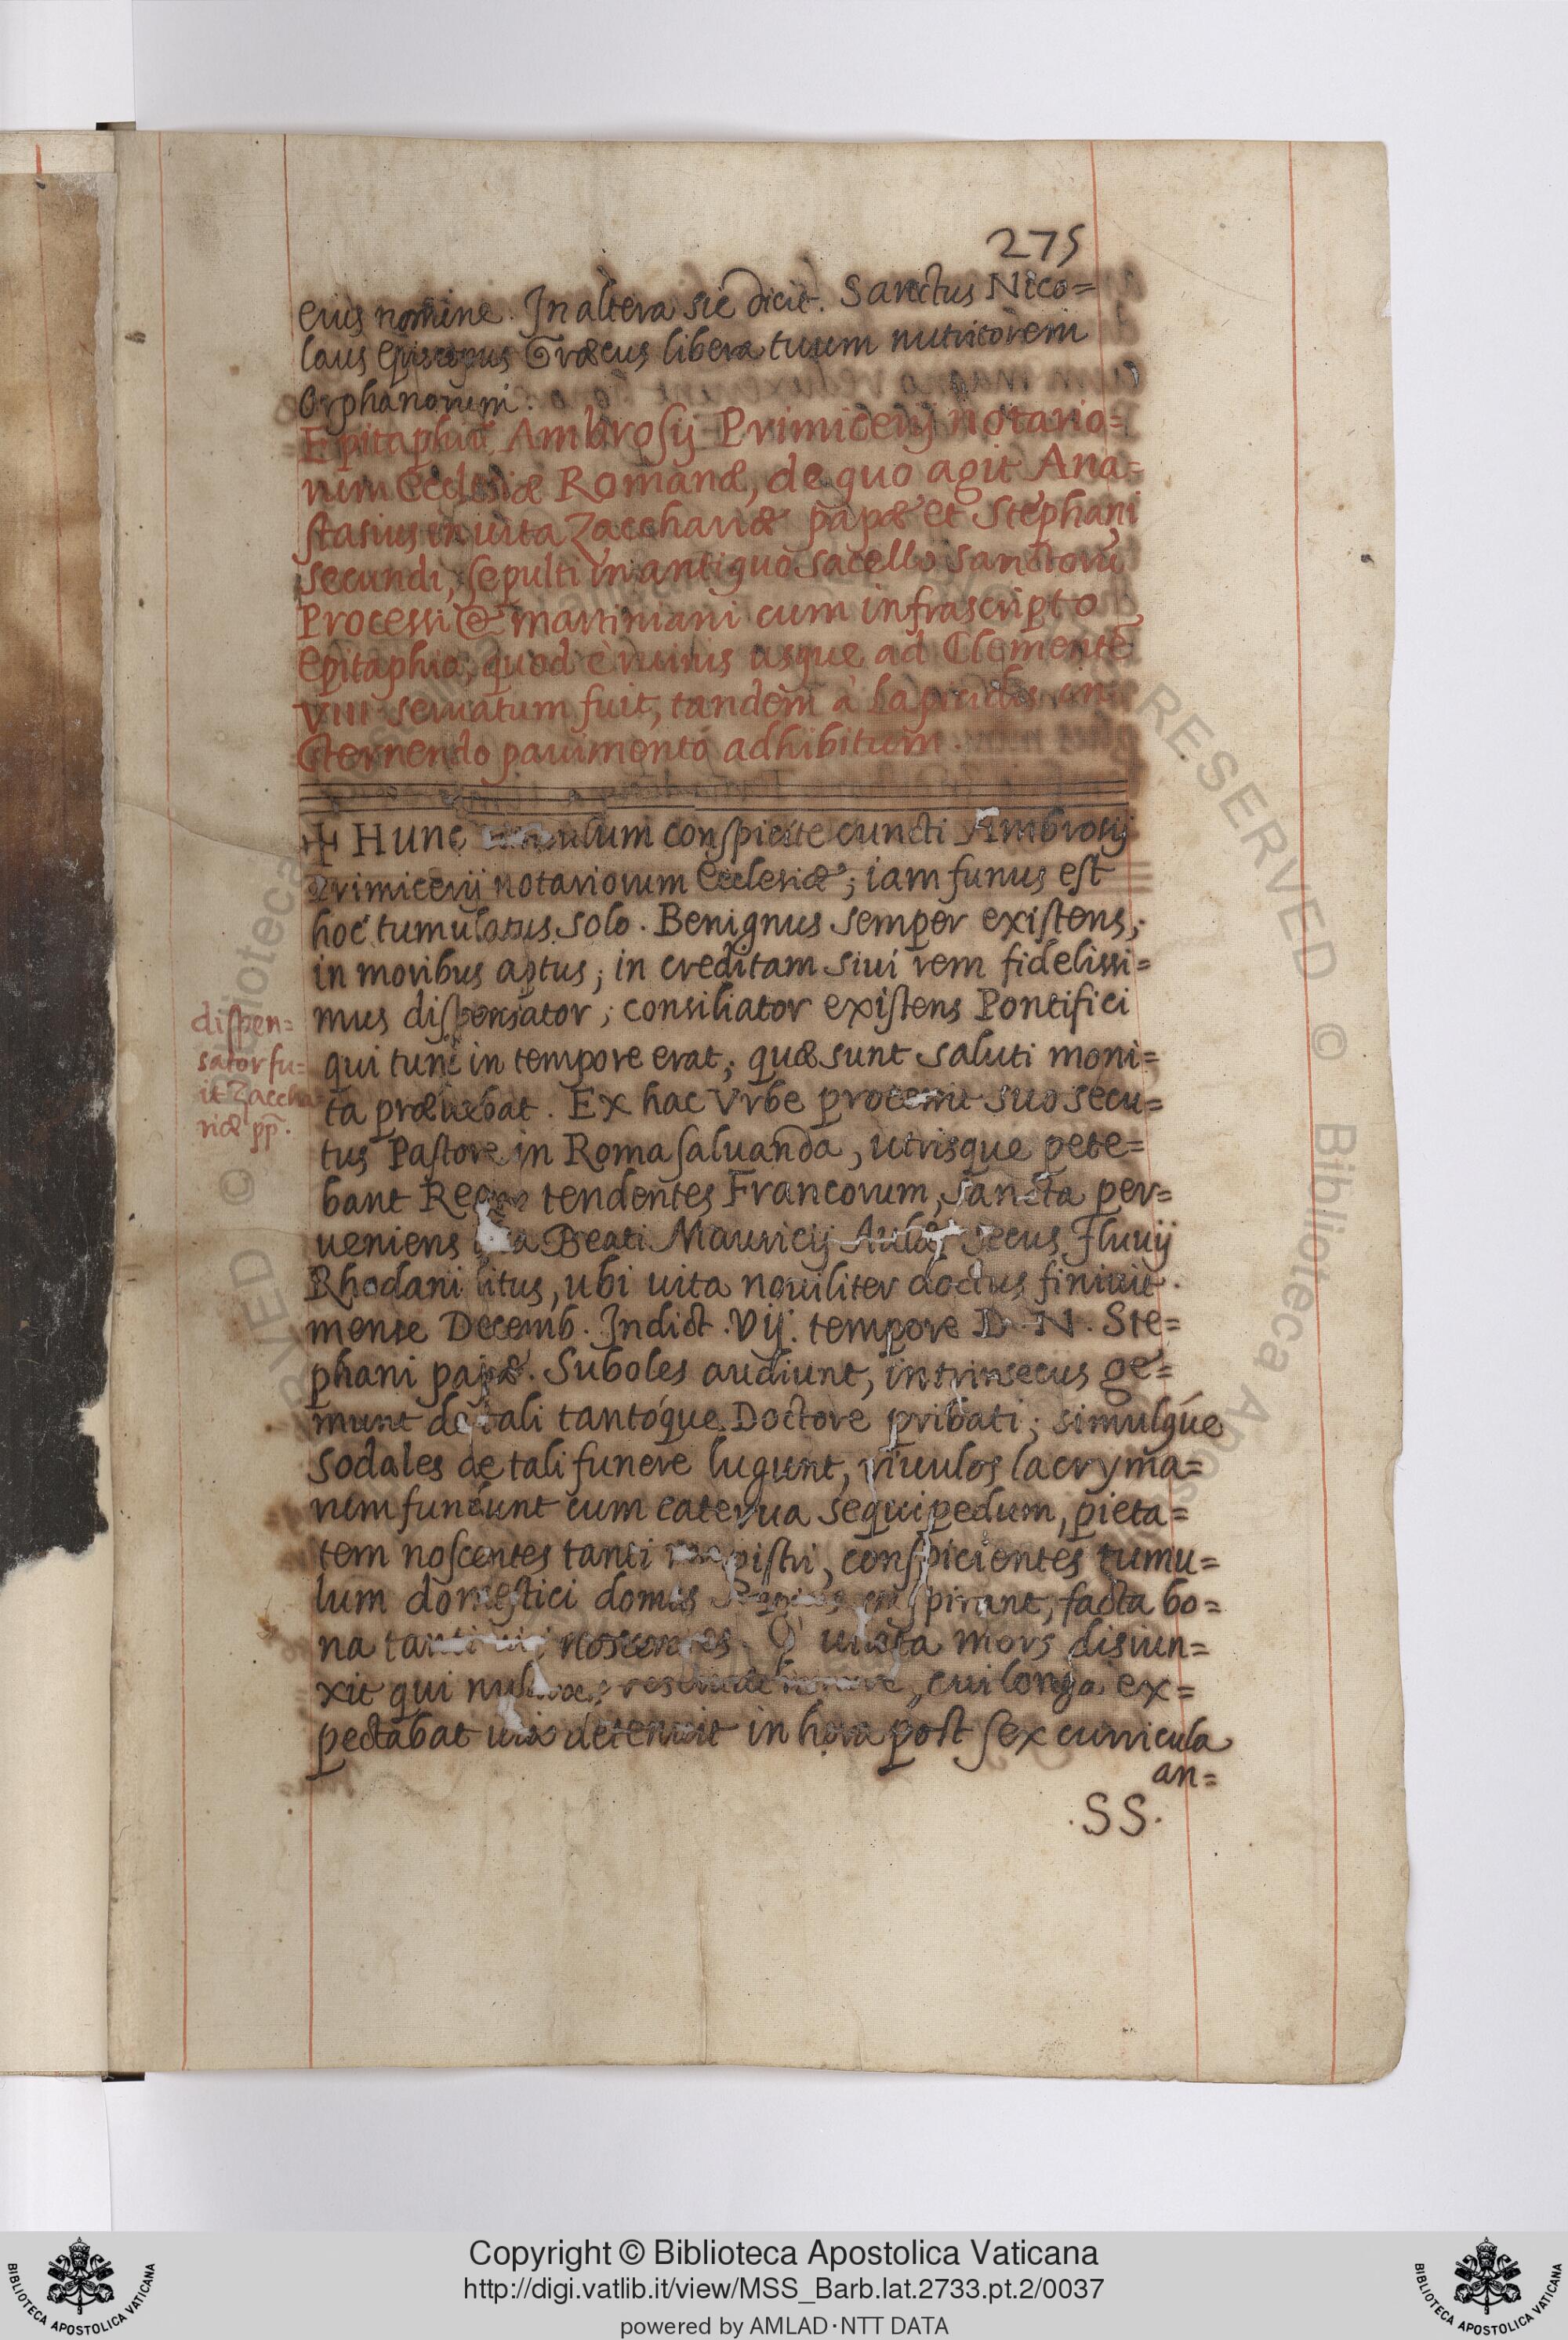 275
eius nomine. In altera sic dicit. Sanctus Nico=
laus Episcopus Græcus libera tuum nutritorem
Orphanorum.
Epitaphiũ Ambrosij Primicerij notario=
rum Ecclesiæ Romanæ, de quo agit Ana=
stasius in uita Zacchariæ papæ et Stephani
secundi, sepulti in antiquo sacello sanctorũ
Processi & martiniani cum infrascripto
epitaphio, quod è ruinis usque ad Clementẽ
VIII seruatum fuit, tandem à lapicidis in
sternendo pauimento adhibitum.
✠ Hunc conspicite cuncti Ambrosij
Primicerij notariorum Ecclesiæ; iam funus est
hoc tumulatus solo. Benignus semper existens,
in moribus aptus; in creditam siui rem fidelissi=
mus dispensator; consiliator existens Pontifici
qui tunc in tempore erat; quæ sunt saluti moni=
ta præuebat. Ex hac Vrbe suo secu=
tus Pastore in Roma saluanda, utrisque pete=
bant tendentes Francorum, sancta per=
ueniens Beati Mauricij secus Fluuij
Rhodani litus, ubi uita nouiliter doctus finiuit.
mense Decemb. Indict. VIj. tempore D. N. Ste=
phani papæ. Suboles audiunt, intrinsecus ge=
munt de tali tantóque Doctore pribati; simulqúe
sodales de tali funere lugunt, riuulos lacryma=
rum fundunt cum caterua sequipedum, pieta=
tem noscentes tanti conspicientes tumu=
lum domestici domus facta bo=
na mors disiun=
xit qui cui longa ex=
pectabat in hora post sex curricula
an=
.SS.
dispen=
sator fu=
it Zaccha=
riæ pp̃.
Copyright © Biblioteca Apostolica Vaticana
http://digi.vatlib.it/view/MSS_Barb.lat.2733.pt.2/0037
powered by AMLAD·NTT DATA